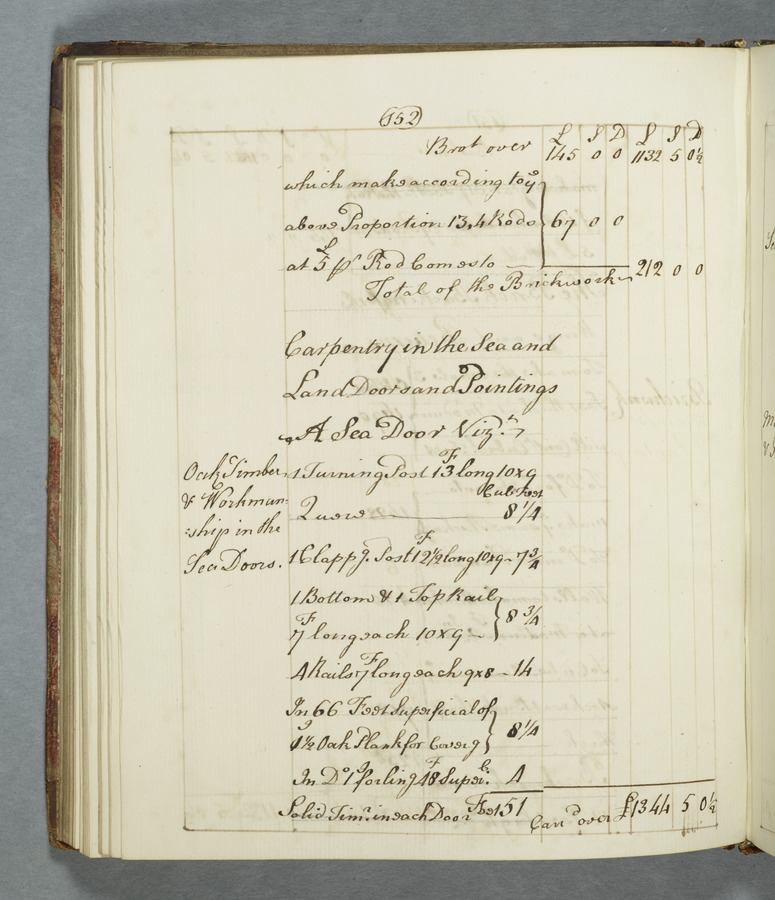 152
£ S D £ S D
Brot over 145 0 0 1132 5 0½
which make according to ye
above Proportion 13,4 Rods 67 0 0
at £5 pr Rod Comes to
Total of the Brickwork 212 0 0
Carpentry in the Sea and
Land Doors and Pointings
A Sea Door Vizt
Oak Timber
& Workman
:ship in the
Sea Doors.
1 Turning Post 13 F long 10x9
Cub Feet
Quere 8 1/4
1 Clappg. Post 12½ F long 10x9 - 7¾
1 Bottom & 1 Top Rail
7 F long each 10x9 - 8 3/4
4 Rails 7 F long each 9x8 - 14
In 66 Feet Superficial of
1½ I Oak Plank for Coverg 8 1/4
In Do 1 I for ling 48 F Super: 4
Solid Timr. in each Door Feet 51
Carrd over £1344 5 0½